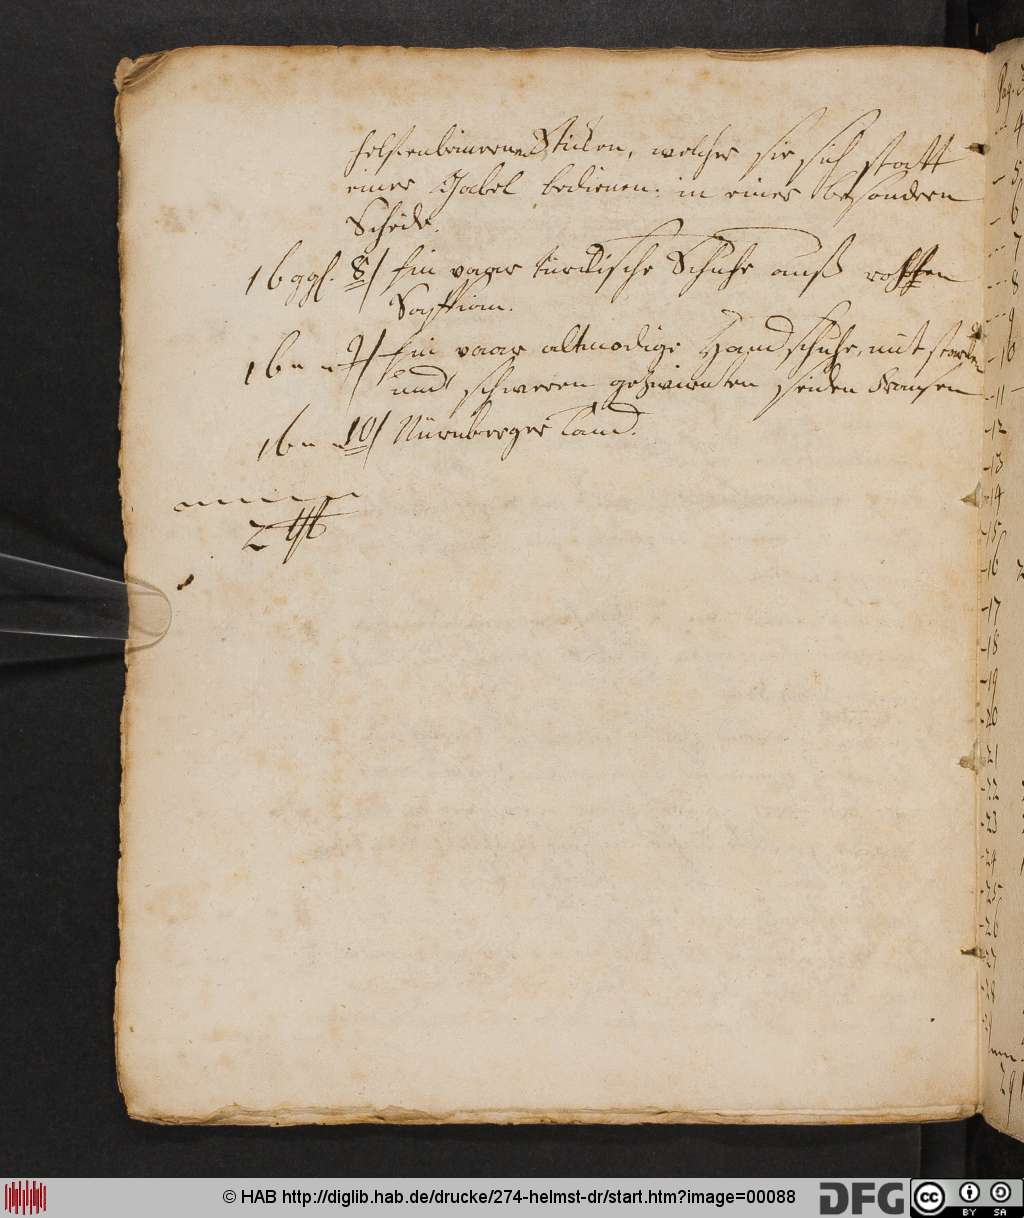 helfenbeinern Sticken, welcher sie sich statt
einer Gabel bedienen. in einer besondern
Scheide.
16 ggl. 8/ Ein paar türckische Schuhe auß rohten
Saffian.
16 " " 9/ Ein paar altmodige Handschuhe, mit starcken
und schweren gezwirnten seiden Fransen
16 " " 10/ Nürnberger Tand.
2
Pag.
4
5
6
7
8
9
10
11
12
13
14
15
16
17
18
19
20
21
22
23
24
25
26
27
28
© HAB http://diglib.hab.de/drucke/274-helmst-dr/start.htm?image=00088
DFG
cc
BY SA